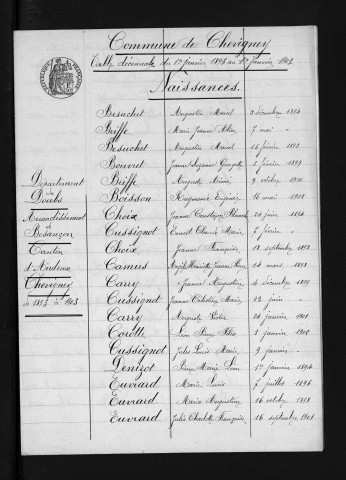 Commune de Chevigney
Table décennale du 1er janvier 1893 au 1er janvier 1903
Naissances.
Département
du
Doubs
Arrondissement
de
Besançon
Canton
d'Audeux
Chevigney
de 1893 à 1903
Besuchet Augustin Marcel 2 décembre 1894
Biffe Marie Jeanne 7 mai "
Besuchet Augustin Marcel 16 février 1893
Bouvret Jeanne Suzanne Georgette 2 février 1899
Biffe Auguste 9 octobre 1900
Boisson Raymond Eugène 10 mai 1901
Choix Jeanne Blanche 20 juin 1894
Cussignot Ernest Marie 7 février "
Choix Jeanne Françoise 18 septembre 1898
Camus Jeanne 24 mars 1893
Carry Jeanne Augustine 4 décembre 1899
Cussignot Jeanne Célestine Marie 23 juin "
Carry Auguste 24 janvier 1901
Corotte Léon Pierre Félix 3 janvier 1902
Cussignot Jules Louis Marie 9 janvier "
Denizot Pierre Marie Léon 1er janvier 1894
Euvrard Marie Louise 7 juillet 1896
Euvrard Maria Augustine 16 octobre 1898
Euvrard Julie Charlotte Françoise 16 septembre 1901